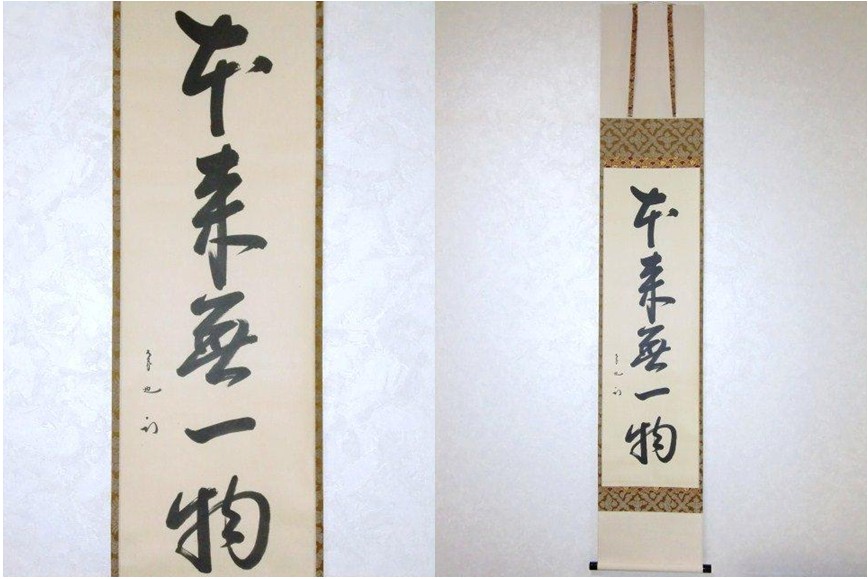 本来無一物
本来無一物